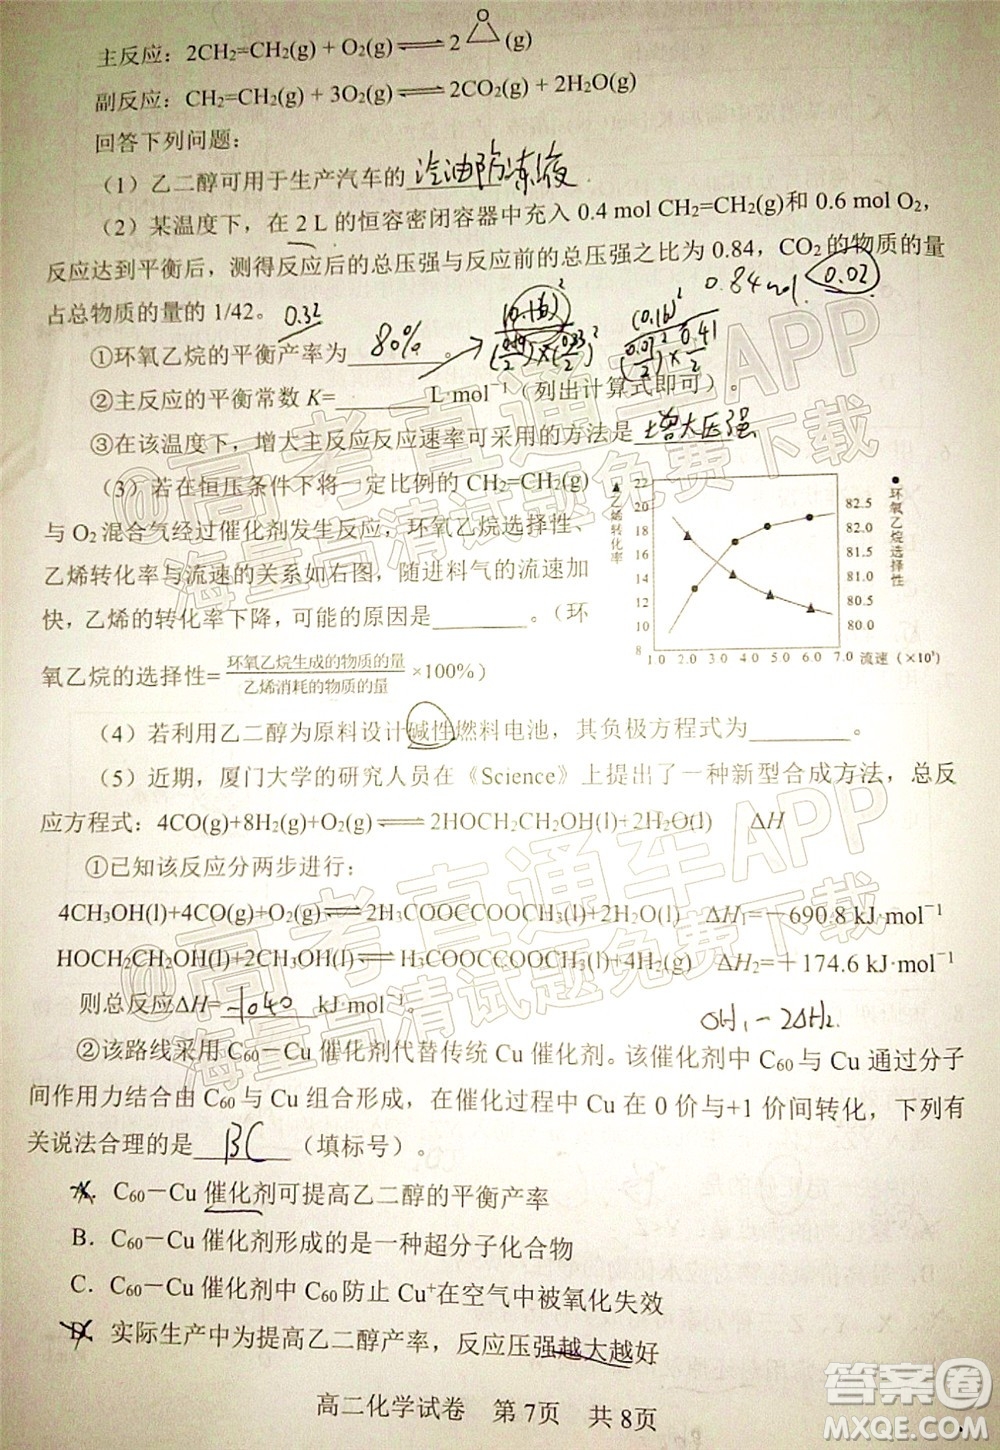 主反应：2CH₂=CH₂(g) + O₂(g)⇌2 O (g)
副反应：CH₂=CH₂(g) + 3O₂(g)⇌2CO₂(g) + 2H₂O(g)
回答下列问题：
（1）乙二醇可用于生产汽车的 汽油防冻液
（2）某温度下，在 2 L 的恒容密闭容器中充入 0.4 mol CH₂=CH₂(g)和 0.6 mol O₂，
反应达到平衡后，测得反应后的总压强与反应前的总压强之比为 0.84，CO₂ 的物质的量
0.84mol 0.02
占总物质的量的 1/42。 0.32
①环氧乙烷的平衡产率为 80% 。
②主反应的平衡常数 K=______ L·mol⁻¹（列出计算式即可）。
③在该温度下，增大主反应反应速率可采用的方法是 增大压强
（3）若在恒压条件下将一定比例的 CH₂=CH₂(g)
与 O₂ 混合气经过催化剂发生反应，环氧乙烷选择性、
乙烯转化率与流速的关系如右图，随进料气的流速加
快，乙烯的转化率下降，可能的原因是______。（环
氧乙烷的选择性=环氧乙烷生成的物质的量/乙烯消耗的物质的量×100%）
▲乙烯转化率
22
20
18
16
14
12
10
8
1.0 2.0 3.0 4.0 5.0 6.0 7.0 流速（×10³）
82.5
82.0
81.5
81.0
80.5
80.0
●环氧乙烷选择性
（4）若利用乙二醇为原料设计碱性燃料电池，其负极方程式为______。
（5）近期，厦门大学的研究人员在《Science》上提出了一种新型合成方法，总反
应方程式：4CO(g)+8H₂(g)+O₂(g)⇌2HOCH₂CH₂OH(l)+2H₂O(l) ΔH
①已知该反应分两步进行：
4CH₃OH(l)+4CO(g)+O₂(g)⇌2H₃COOCCOOCH₃(l)+2H₂O(l) ΔH₁=－690.8 kJ·mol⁻¹
HOCH₂CH₂OH(l)+2CH₃OH(l)⇌H₃COOCCOOCH₃(l)+4H₂(g) ΔH₂=＋174.6 kJ·mol⁻¹
则总反应ΔH= -1040 kJ·mol⁻¹。
ΔH₁-2ΔH₂
②该路线采用 C₆₀－Cu 催化剂代替传统 Cu 催化剂。该催化剂中 C₆₀ 与 Cu 通过分子
间作用力结合由 C₆₀ 与 Cu 组合形成，在催化过程中 Cu 在 0 价与+1 价间转化，下列有
关说法合理的是 BC （填标号）。
A．C₆₀－Cu 催化剂可提高乙二醇的平衡产率
B．C₆₀－Cu 催化剂形成的是一种超分子化合物
C．C₆₀－Cu 催化剂中 C₆₀ 防止 Cu⁺在空气中被氧化失效
D．实际生产中为提高乙二醇产率，反应压强越大越好
高二化学试卷 第 7页 共 8页
@高考直通车APP
海量高清试题免费下载
@高考直通车APP
海量高清试题免费下载
答案圈
MXQE.COM